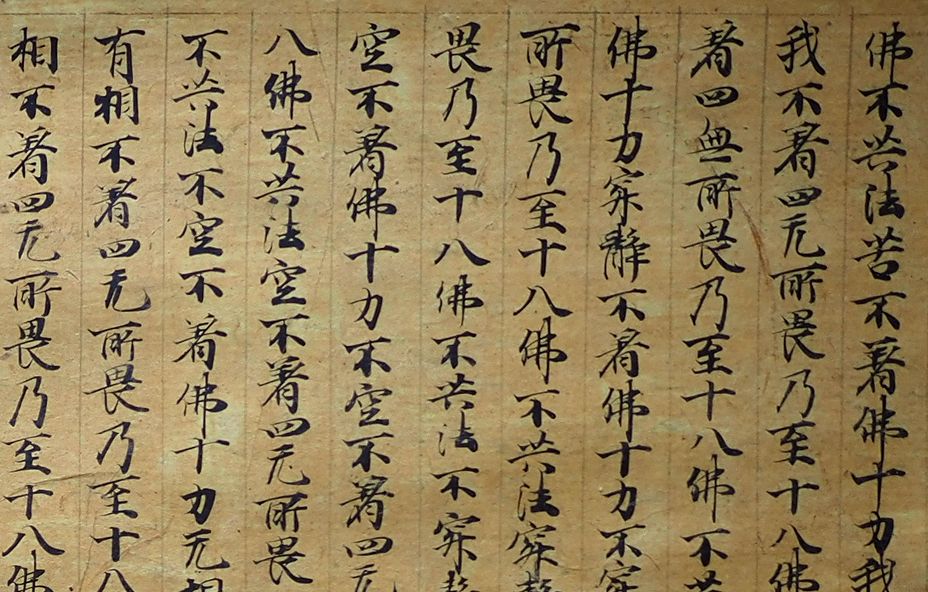 佛不共法苦不著佛十力我
我不著四无所畏乃至十八佛
著四無所畏乃至十八佛不共
佛十力寂靜不著佛十力不寂
所畏乃至十八佛不共法寂靜
畏乃至十八佛不共法不寂靜
空不著佛十力不空不著四无
八佛不共法空不著四无所畏
不共法不空不著佛十力无相
有相不著四无所畏乃至十八
相不著四无所畏乃至十八佛